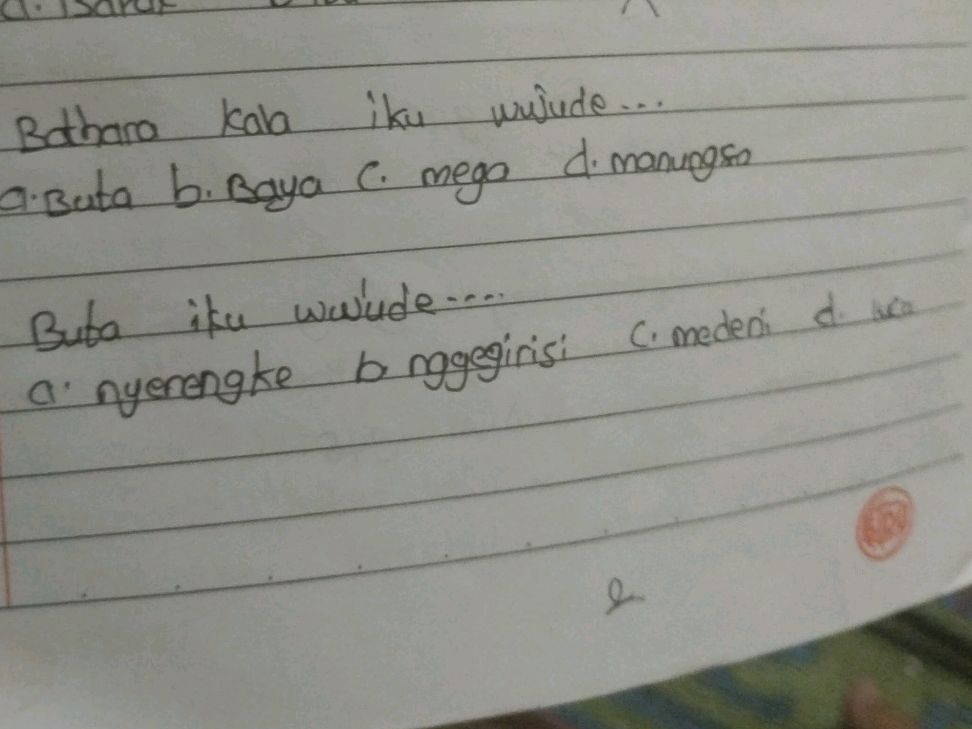 Bathara kala iku wujude...
a. Buta b. Baya c. mega d. manungsa
Buta iku wujude....
a. nyerengke b nggegirisi c. medeni d.